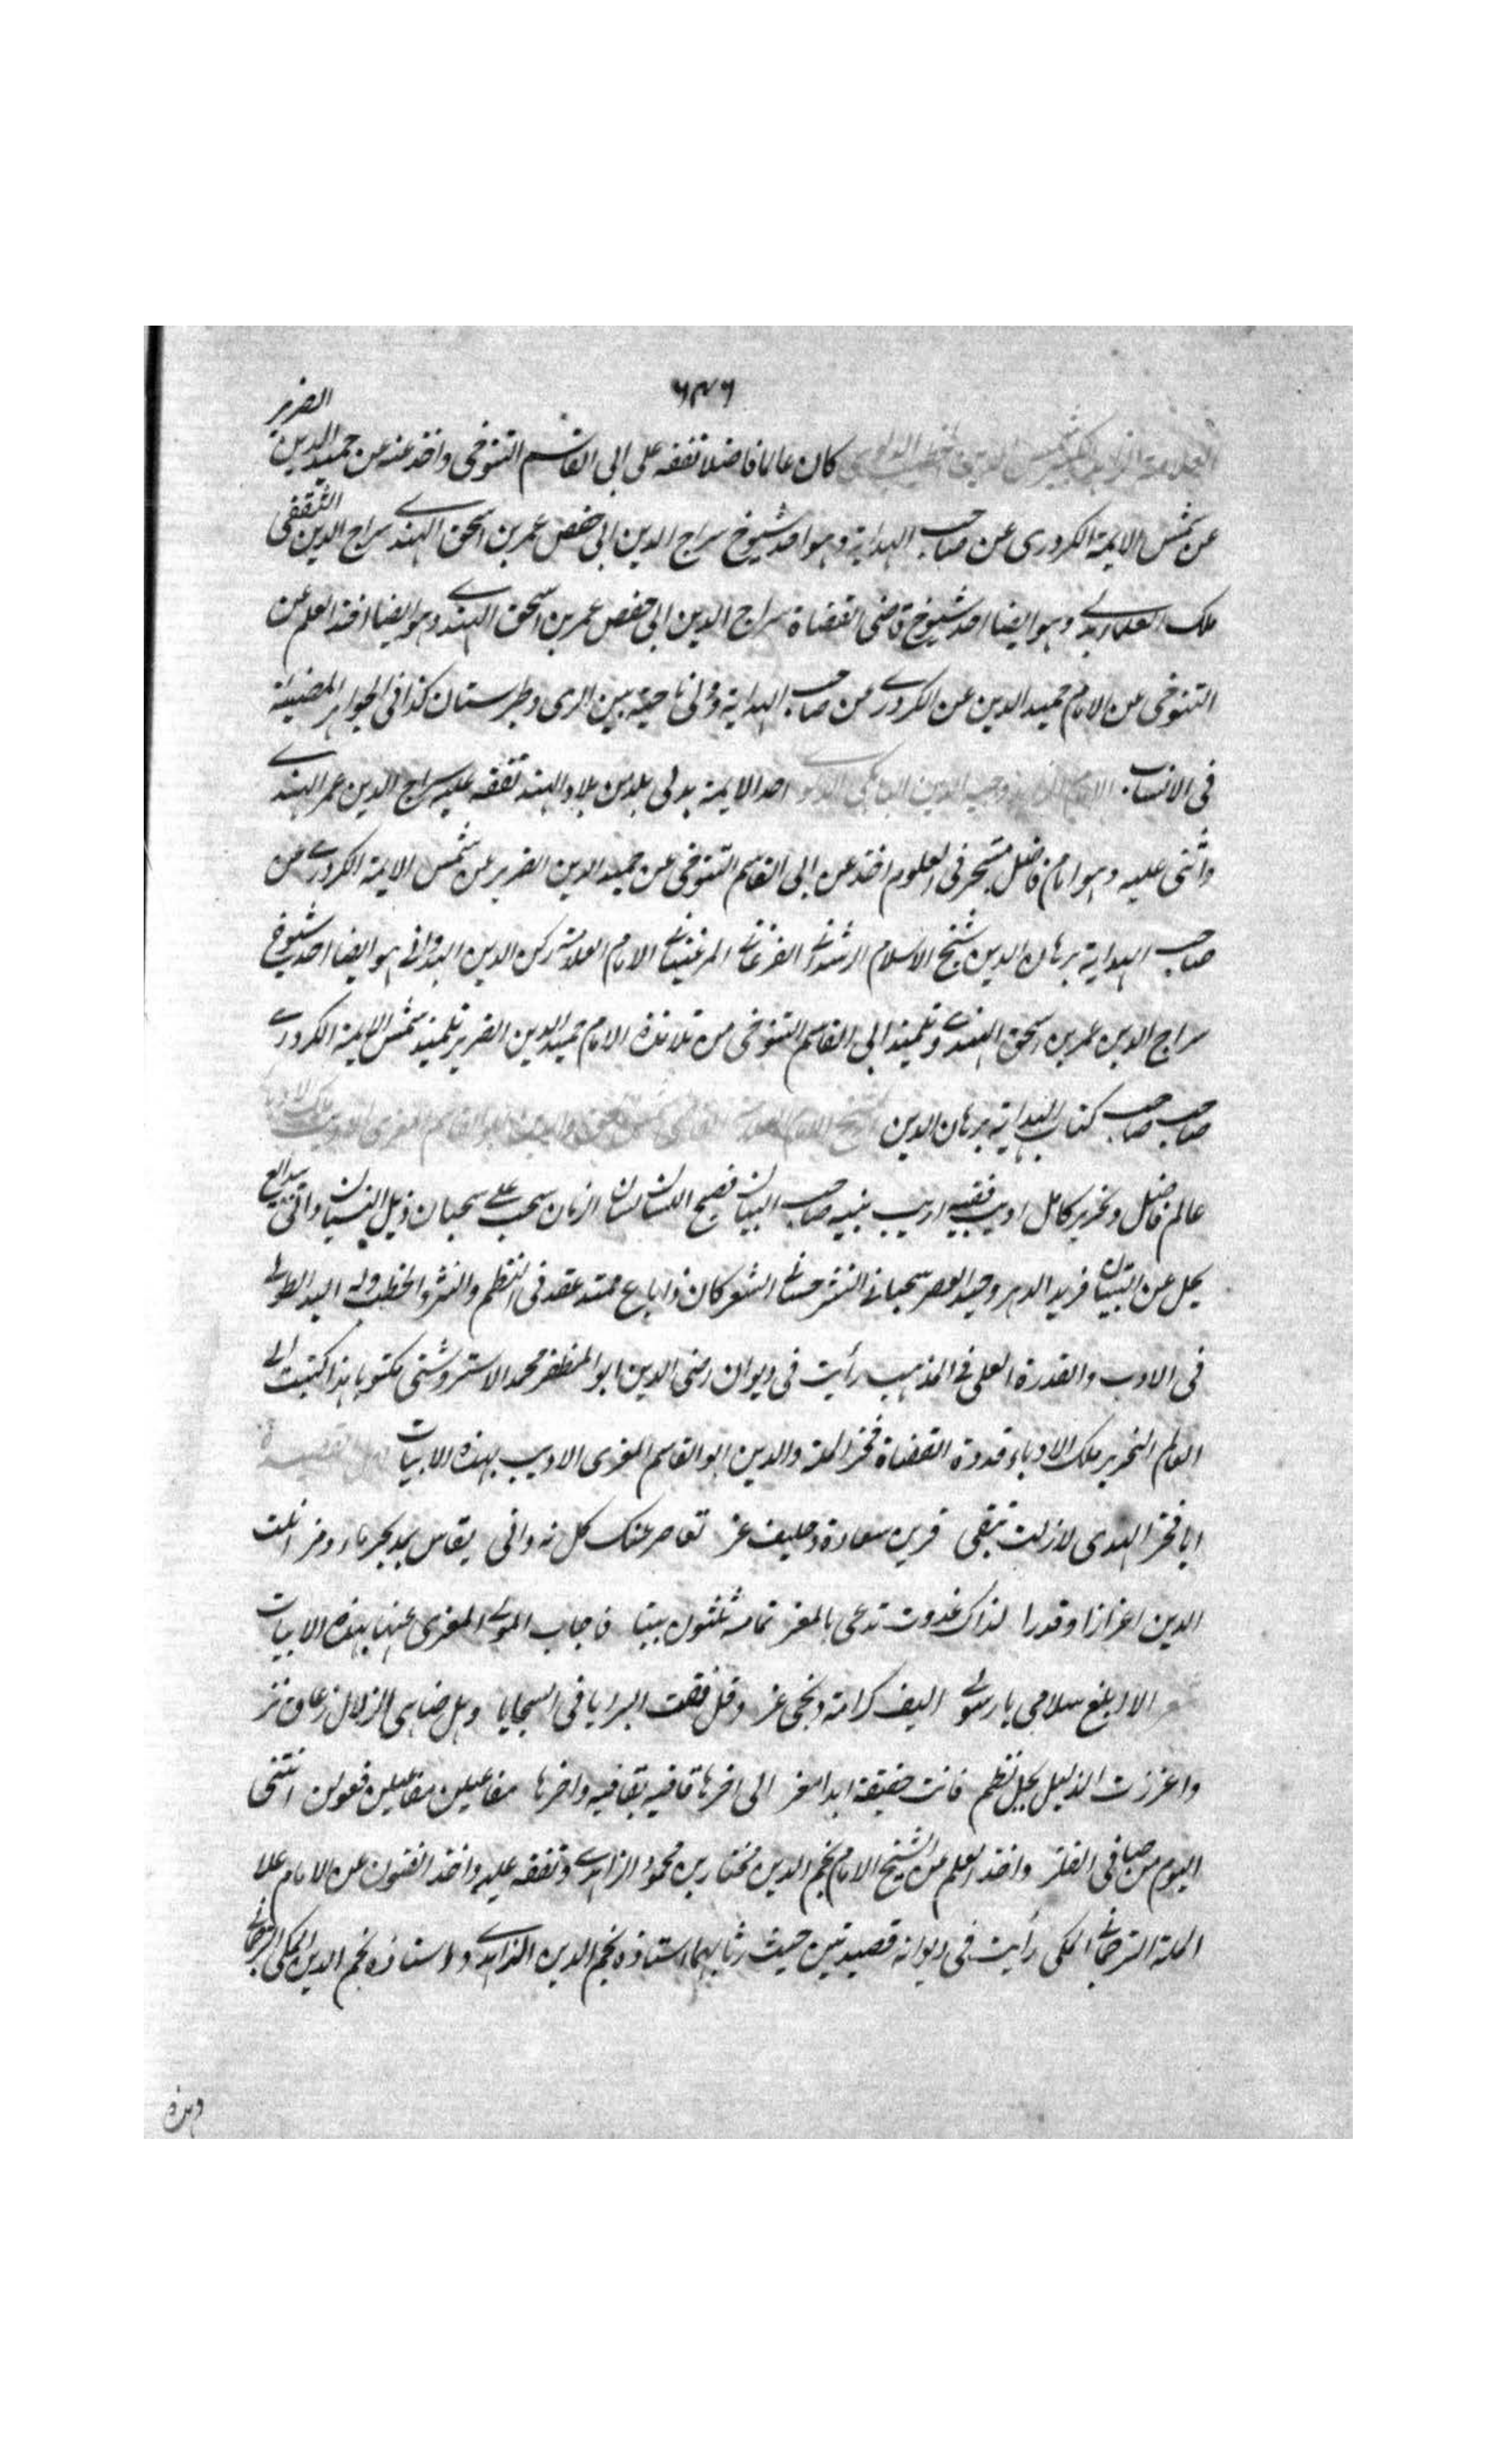 ٦٤٦
كان عالما فاضلا تفقه على ابى القاسم التنوخى واخذ عنه عن حميد الدين الضرير
عن شمس الايمة الكردرى عن صاحب الهداية وهو احد شيوخ سراج الدين ابى حفص عمر بن اسحق الهندے سراج الدين الثقفى
ملك العلماء بدلے وهو ايضا احد شيوخ قاضى القضاة سراج الدين ابى حفص عمر بن اسحق الهندے وهو ايضا اخذ العلم عن
التنوخى عن الامام حميد الدين عن الكردرے عن صاحب الهداية ناحية بين الرى وطبرستان كذا فى الجواهر المضيئة
فى الانساب الامام وجيه الدين احد الايمة بدلى بلد من بلاد الهند تفقه عليه سراج الدين عمر الهندے
واثنى عليه وهو امام فاضل متبحر فى العلوم اخذ عن ابى القاسم التنوخى عن حميد الدين الضرير عن شمس الايمة الكردرے عن
صاحب الهداية برهان الدين شيخ الاسلام الرشدانے الفرغانے المرغينانے الامام العلامة ركن الدين هو ايضا احد شيوخ
سراج الدين عمر بن اسحق الهندے وتلميذ ابى القاسم التنوخى من تلامذة الامام حميد الدين الضرير تلميذ شمس الايمة الكردرے
صاحب صاحب كتاب الهداية برهان الدين الشيخ الامام
عالم فاضل ونحرير كامل اديب فقيه اريب نبيه صاحب البيان فصيح اللسان لسان الزمان سحب علے سحبان ذيل النسيان واتى ببدايع
يجل عن التبيان فريد الدهر وحيد العصر سحبانے النثر حسانے الشعر كان ذا باع ممتد عقد فى النظم والنثر والخطب وله اليد الطولے
فى الادب والقدرة العلى فے المذهب رأيت فى ديوان رضى الدين ابو المظفر محمد الاستروشنى مكتوبا هذا كتبت الے
العالم النحرير ملك الادباء قدوة القضاة فخر الملة والدين ابو القاسم المغزى الاديب بهذه الابيات
ايا فخر الهدى لازلت تبقى قرين سعادة وحليف عز تعاصر عنك كل نه وانى يقاس بد بحر ماء ومز انلت
الدين اعزازا وقدرا لذاك غدوت تدعى بالمغز تمامه ثلثون بيتا فاجاب المولے المغزى عنها بهذه الابيات
الا ابلغ سلامى يا رسولے اليف كرامة ونجى عز وقل فقت البرايا فى السجايا وهل ضاهى الزلال زعاق نز
واعززت الذليل بجل نظم فانت حقيقة ابدا مغز الى اخرها قافية بقافية واخرها مفاعيلن مفاعيلن فعولن انتخى
اليوم من صافى الفلز واخذ العلم عن الشيخ الامام نجم الدين مختار بن محمود الزاهدے وتفقه عليه واخذ الفنون عن الامام علا
الملة الترجمانے المكى رأيت فى ديوانه قصيدتين حيث رثا بهما استاذه نجم الدين الزاهدے واستاذه نجم الدين المكى الترجمانے
وهذه